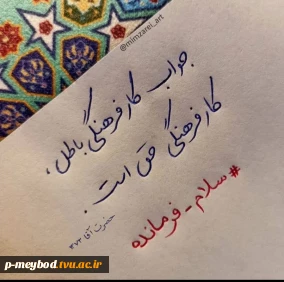 @mimzarei_art
جواب کار فرهنگی باطل،
کار فرهنگی حق است.
حضرت آقا
#سلام_فرمانده
p-meybod.tvu.ac.ir